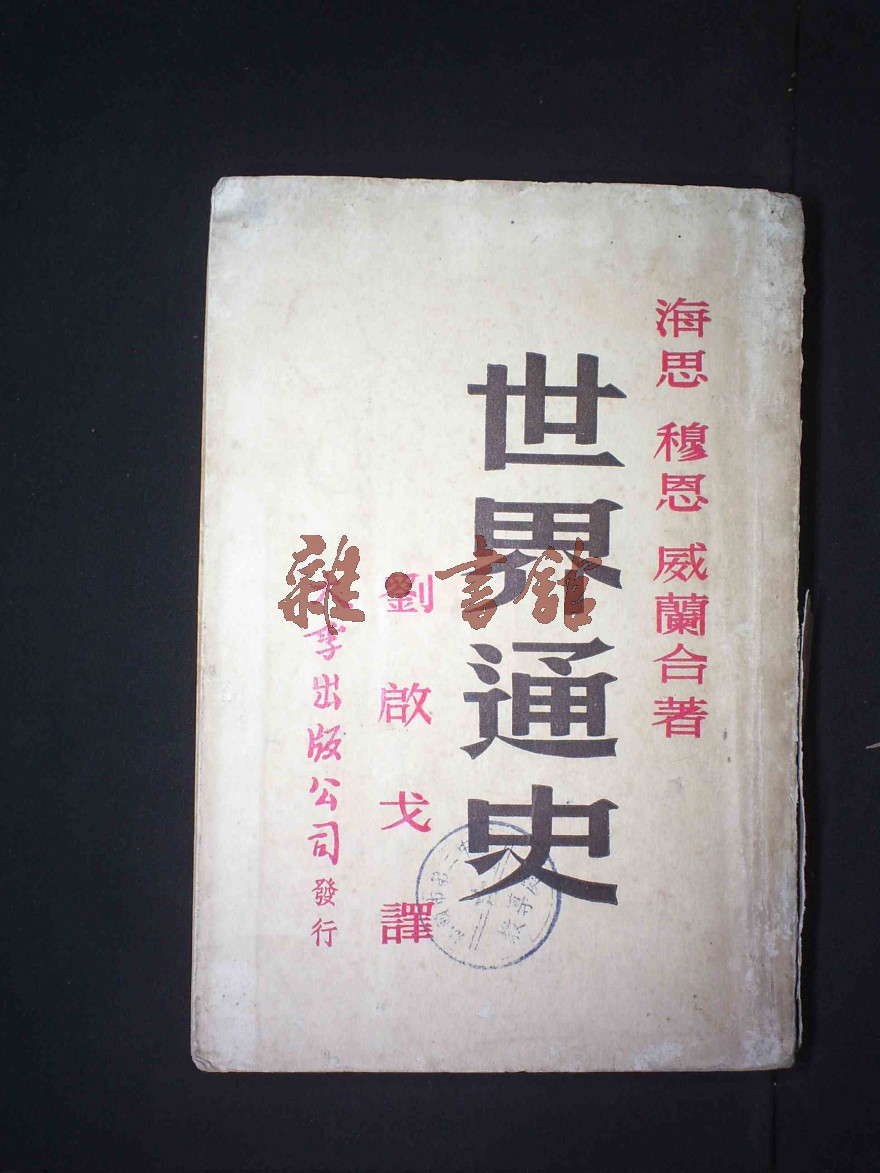 海思 穆恩 威蘭合著
世界通史
劉啟戈譯
孚出版公司發行
雜·書館